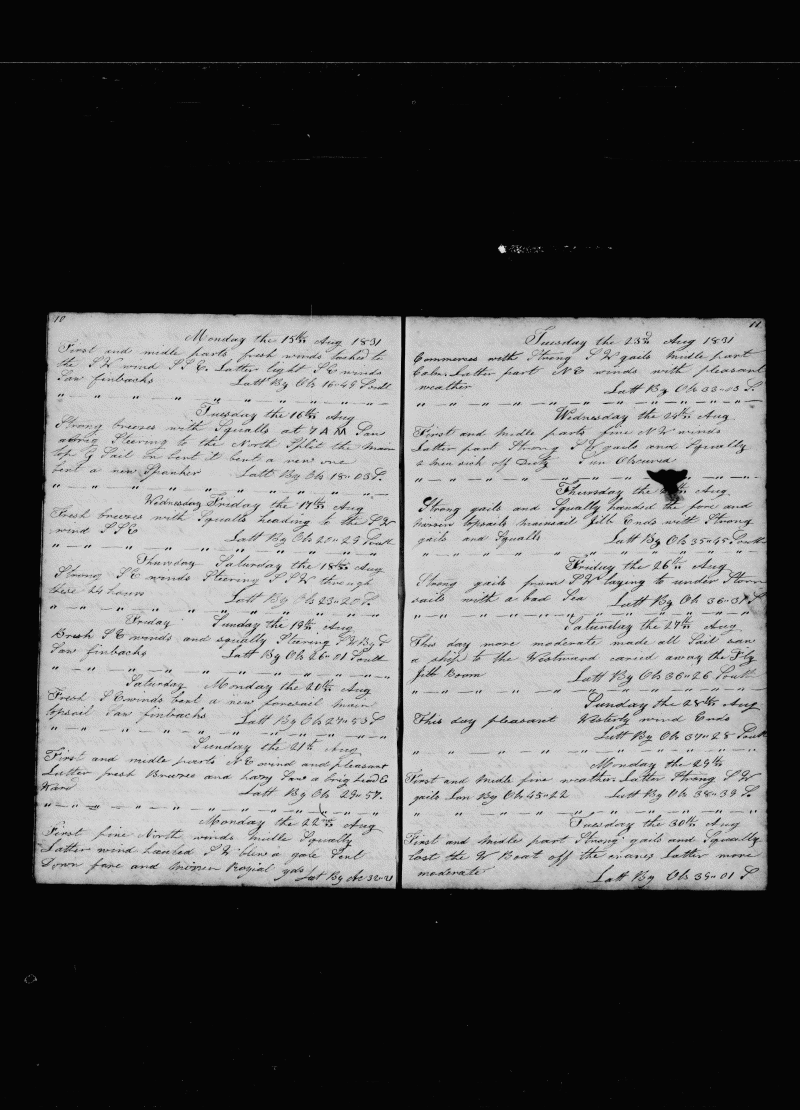 10
Monday the 15th Aug 1831
First and midle parts fresh winds tacked to
the S W wind S S E. Latter light S E winds
Saw finbacks Latt By Ob 16-49 South
Tuesday the 16th Aug
Strong breezes with Squalls at 7 AM Saw
a brig Stearing to the North Split the main
top G Sail un bent it bent a new one
bent a new Spanker Latt By Ob 18-03 S.
Wednesday Friday the 17th Aug
Fresh breezes with Squalls heading to the S W
wind S S E Latt By Ob 20-29 South
Thursday Saturday the 18th Aug
Strong S E winds Stearing S S W through
these 24 hours Latt By Ob 23-20 S.
Friday Sunday the 19th Aug
Bresh S E winds and squally Stearing S W By S
Saw finbacks Latt By Ob 26-01 South
Saturday Monday the 20th Aug
Fresh S E winds bent a new foresail main
topsail Saw finbacks Latt By Ob 27-53 S
Sunday the 21th Aug
First and midle parts N E wind and pleasant
Latter fresh Breeze and hazy Saw a brig head E
Ward Latt By Ob 29-57.
Monday the 22th Aug
First fine North winds midle Squally
Latter wind hauled S W blew a gale Sent
Down fore and mizen Royial yds Latt By Ac 32-21
11
Tuesday the 23d Aug 1831
Commences with Strong S W gails midle part
Calm. Latter part N E winds with pleasant
weather Latt By Ob 33-03 S.
Wednesday the 24th Aug
First and midle parts fine N W winds
Latter part Strong S W gails and Squally
2 men sick off Duty Sun Obscured
Thursday the Aug.
Strong gails and Squally handed the fore and
mizen topsails mainsail Jibb Ends with Strong
gails and Squalls Latt By Ob 35-45 South
Friday the 26th Aug
Strong gails from S W laying to under Storm
sails with a bad Sea Latt By Ob 36-31 S
Saturday the 27th Aug
This day more moderate made all Sail saw
a ship to the Westward caried away the Fly
Jibb Boom Latt By Ob 36-26 South
Sunday the 28th Aug
This day pleasant Westerly wind Ends
Latt By Ob 37-28 South
Monday the 29th
First and midle fine weather Latter Strong S W
gails Lon By Ob 45-22 Latt By Ob 38-39 S.
Tuesday the 30th Aug
First and midle part Strong gails and Squally
Lost the W Boat off the cranes Latter more
moderate Latt By Ob 39-01 S